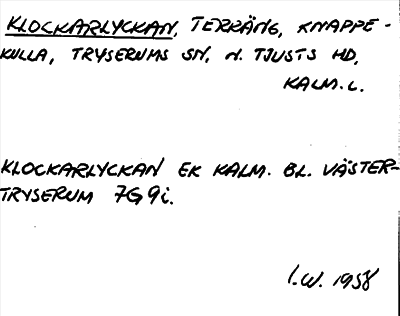 KLOCKARLYCKAN, TERRÄNG, KNAPPE-
KULLA, TRYSERUMS SN, N. TJUSTS HD,
KALM.L.
KLOCKARLYCKAN EK KALM. BL. VÄSTER-
TRYSERUM 7G9i.
I.W. 1958